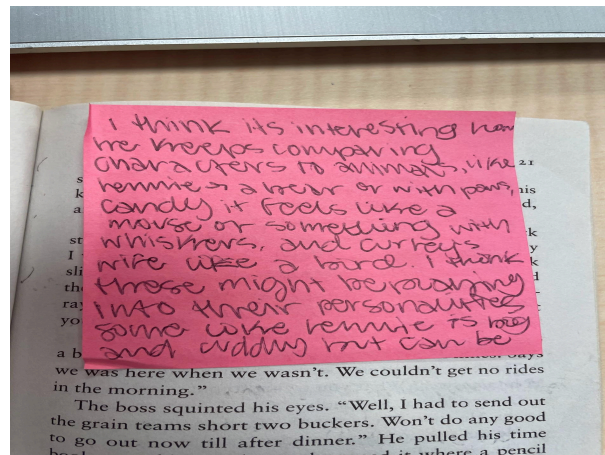 I think its interesting how
he keeps comparing
characters to animals, like
lennie → a bear or with paws,
candy it feels like a
mouse or something with
whiskers, and curleys
wife like a bird. I think
these might be playing
into their personalities
some like lennie is big
and cuddly but can be
21
his
d,
we was here when we wasn't. We couldn't get no rides
in the morning."
The boss squinted his eyes. "Well, I had to send out
the grain teams short two buckers. Won't do any good
to go out now till after dinner." He pulled his time
it where a pencil